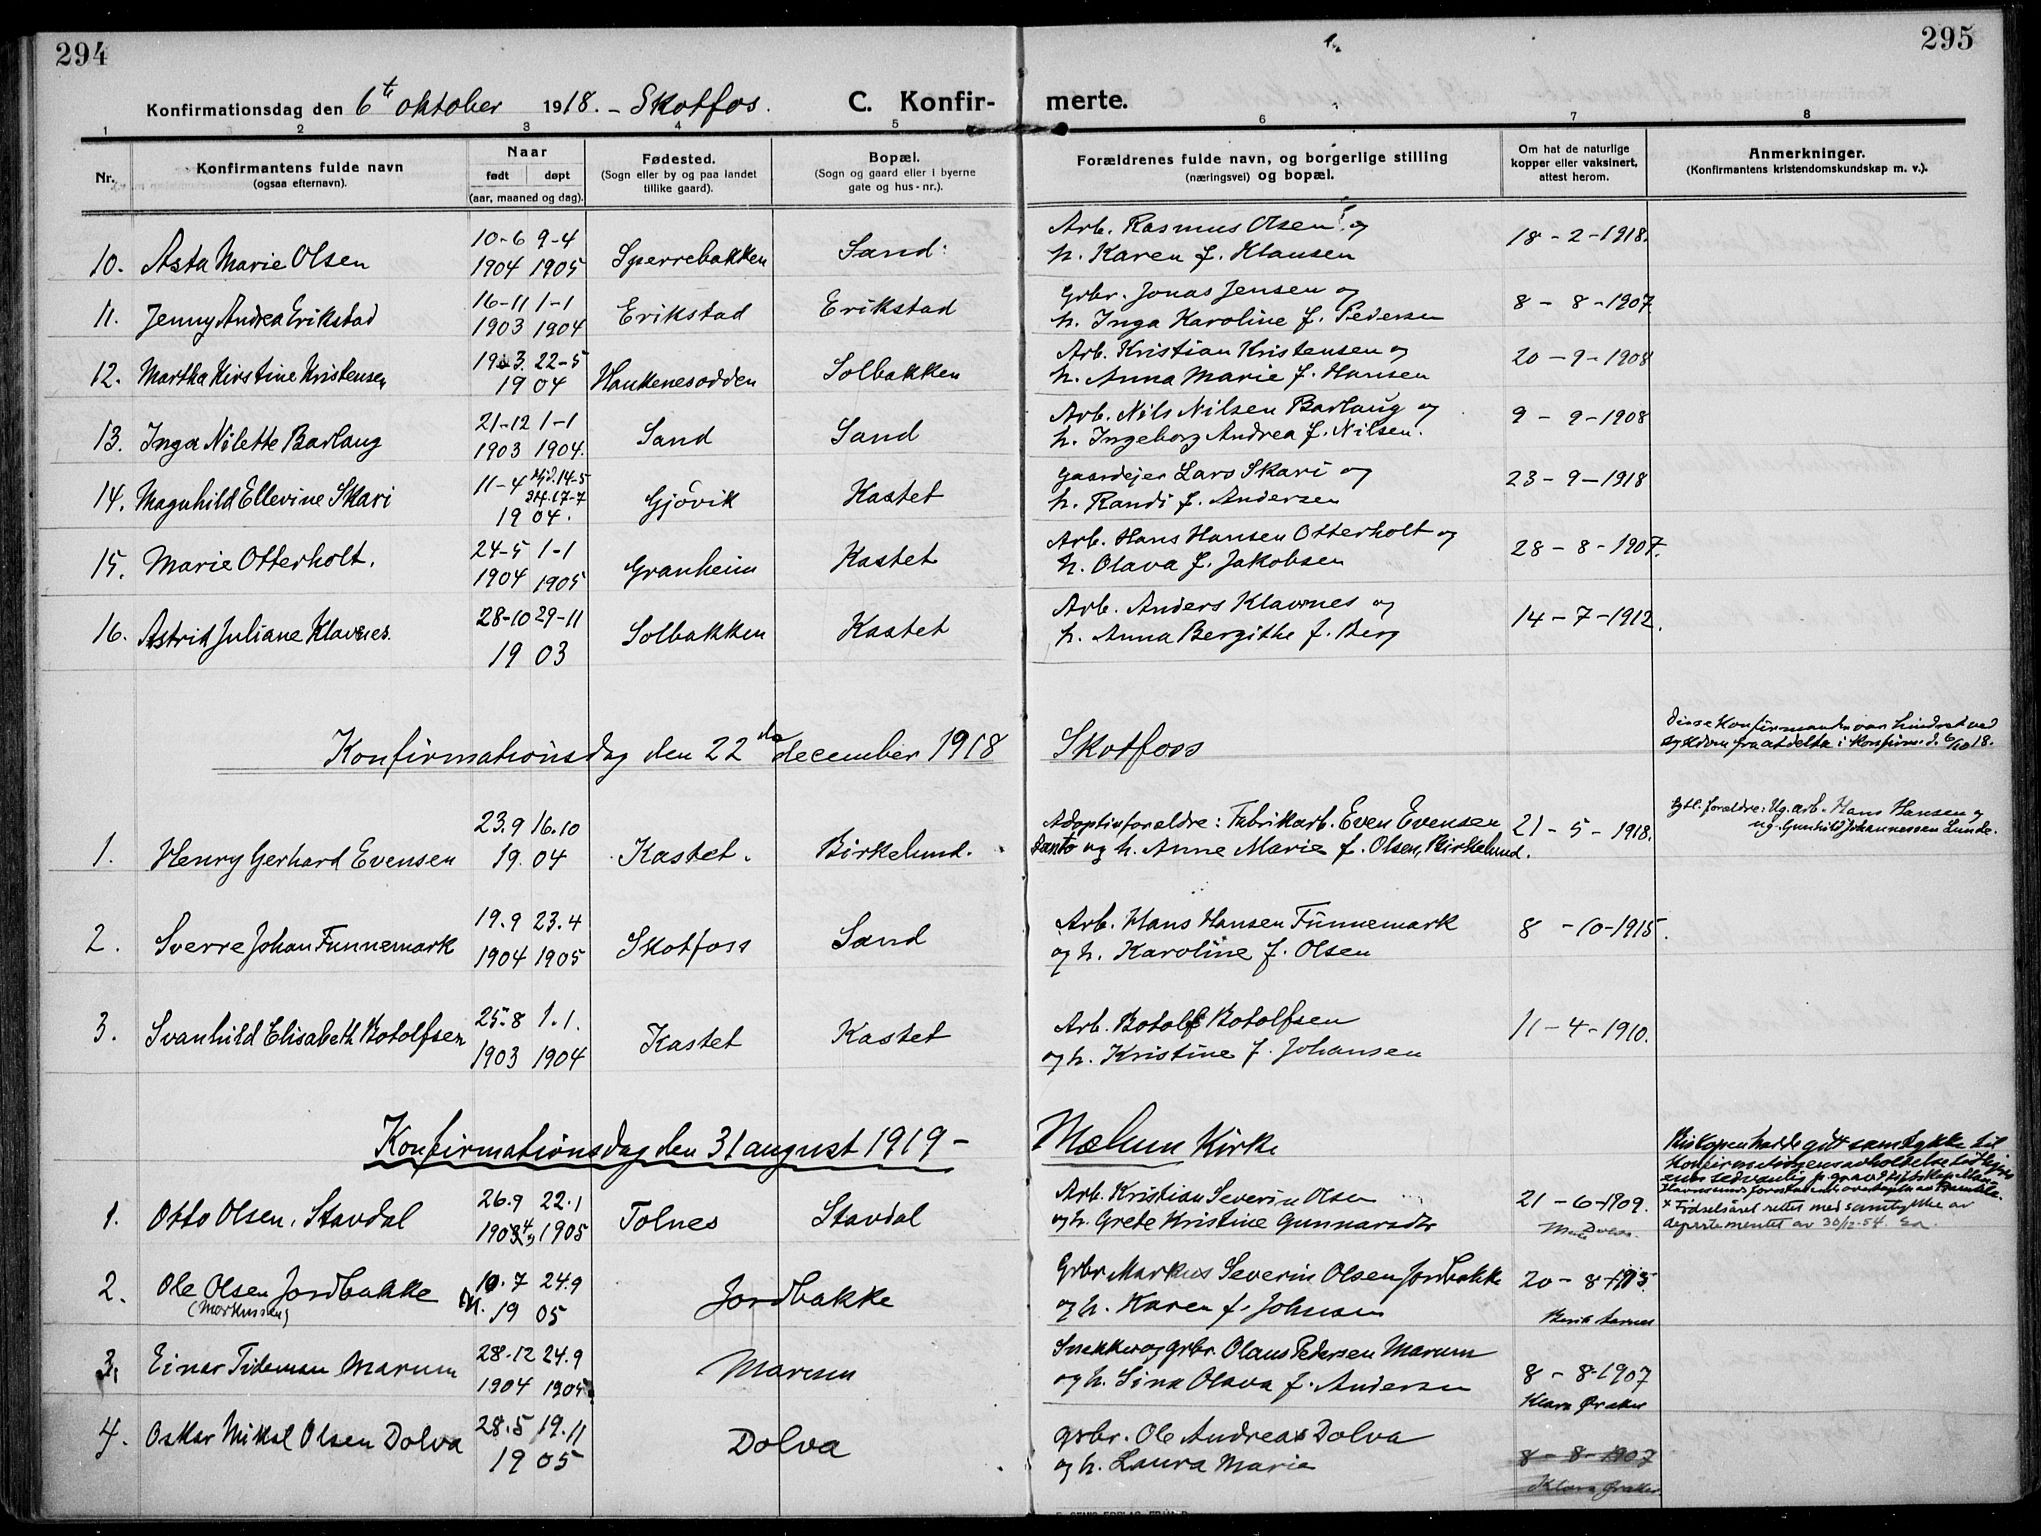 294
295
Konfirmationsdag den 6te oktober 1918. - Skotfos.
C. Konfir-
merte.
1 2 3 4 5 6 7 8
Nr.
Konfirmantens fulde navn
(ogsaa efternavn).
Naar
født døpt
(aar, maaned og dag).
Fødested.
(Sogn eller by og paa landet
tillike gaard).
Bopæl.
(Sogn og gaard eller i byerne
gate og hus-nr.).
Forældrenes fulde navn, og borgerlige stilling
(næringsvei) og bopæl.
Om hat de naturlige
kopper eller vaksinert,
attest herom.
Anmerkninger.
(Konfirmantens kristendomskundskap m. v.).
10. Asta Marie Olsen
10-6 9-4
1904 1905
Sperrebakken
Sand
Arb. Rasmus Olsen og
h. Karen f. Klausen
18-2-1918.
11. Jenny Andrea Erikstad
16-11 1-1
1903 1904
Erikstad
Erikstad
Grbr. Jonas Jensen og
h. Inga Karoline f. Pedersen
8-8-1907.
12. Martha Kirstine Kristensen
19-3. 22-5
19 04
Haukenesodden
Solbakken
Arb. Kristian Kristensen og
h. Anna Marie f. Hansen
20-9-1908
13. Inga Nilette Barlaug
21-12 1-1
1903 1904.
Sand
Sand
Arb. Nils Nilsen Barlaug og
h. Ingeborg Andrea f. Nilsen.
9-9-1908
14. Magnhild Ellevine Skari
11-4 Hjd. 14-5
st. 17-7
19 04.
Gjøvik
Kastet
Gaardejer Lars Skari og
h. Randi f. Andersen
23-9-1918
15. Marie Otterholt.
24-5 1-1
1904 1905
Granheim
Kastet
Arb. Hans Hansen Otterholt og
h. Olava f. Jakobsen
28-8-1907.
16. Astrid Juliane Klavnes.
28-10 29-11
19 03
Solbakken
Kastet
Arb. Anders Klavnes og
h. Anna Bergithe f. Berg
14-7-1912.
Konfirmationsdag den 22de december 1918
Skotfoss
Disse Konfirmanter var hindret ved
sykdom fra at delta i Konfirm. d. 6/10 18.
1. Henry Gerhard Evensen
23.9 16.10
19. 04
Kastet.
Birkelund.
Adoptivforældre: Fabrikarb. Even Evensen
og h. Anne Marie f. Olsen, Birkelund.
21-5-1918.
forældre: Ug. arb. Hans Hansen og
ug. Gunhild Johannessen Lunde.
2. Sverre Johan Funnemark
19.9 23.4
1904 1905
Skotfoss
Sand
Arb. Hans Hansen Funnemark
og h. Karoline f. Olsen
8-10-1915.
3. Svanhild Elisabeth Botolfsen
25.8 1.1.
1903 1904
Kastet
Kastet
Arb. Botolf Botolfsen
og h. Kristine f. Johansen
11-4-1910.
Konfirmationsdag den 31 august 1919 -
Mælum Kirke
Biskopen hadde git samtykke til
Konfirmationens avholdelse
x Fødselsåret rettet med samtykke av
departementet av 30/12-54.
1. Otto Olsen, Stavdal
26.9 22.1
1903 4 1905
Tolnes
Stavdal
Arb. Kristian Severin Olsen
og h. Grete Kristine Gunnarsdtr
21-6-1909.
2. Ole Olsen Jordbakke
(Markussen)
10.7 24.9
19 05
Jordbakke
Grbr Markus Severin Olsen Jordbakke
og h. Karen f. Johnsen
20-8-1915.
3. Einar Tideman Marum
28.12 24.9
1904 1905
Marum
Snekker og grbr. Olaus Pedersen Marum
og h. Lina Olava f. Andersen
8-8-1907
Klara Øraker
4. Oskar Mikal Olsen Dolva
28.5 19.11
19 05
Dolva
grbr. Ole Andreas Dolva
og h. Laura Marie
8-8-1907
Klara Øraker